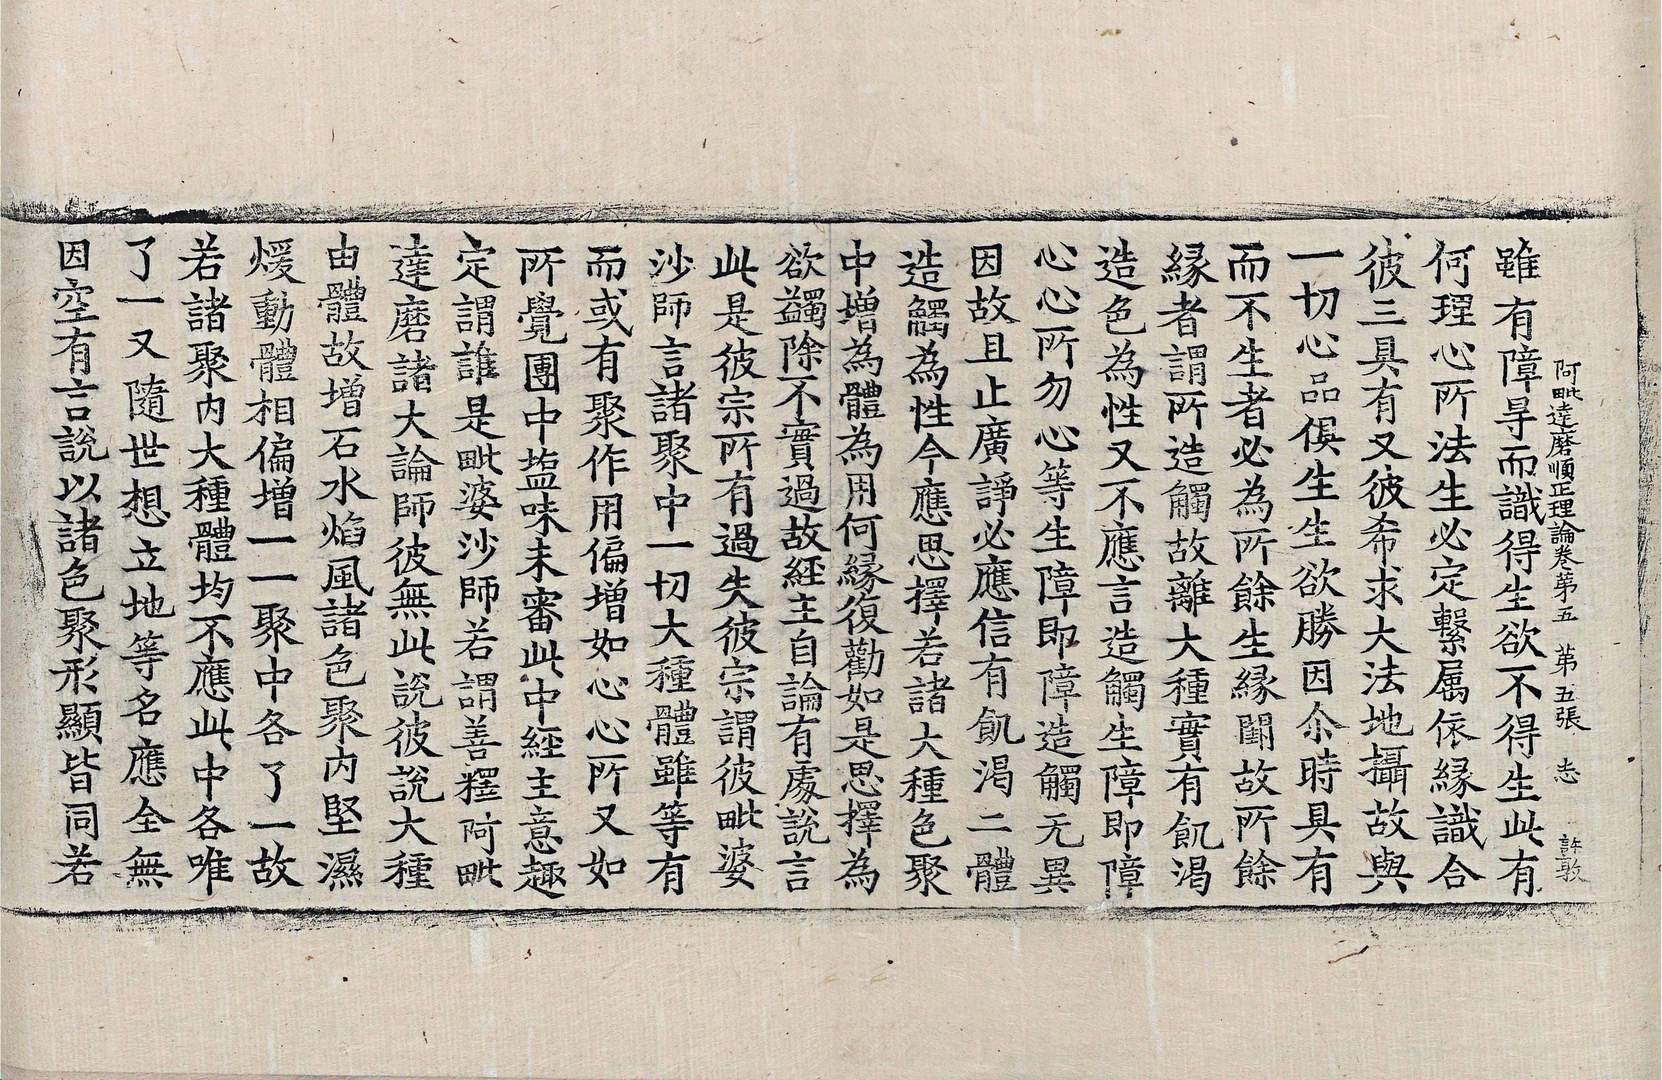 阿毗達磨順正理論卷第五　第五張　志　許敦
雖有障㝵而識得生欲不得生此有
何理心所法生必定繫属依縁識合
彼三具有又彼希求大法地攝故與
一切心品俱生生欲勝因尒時具有
而不生者必為所餘生縁闕故所餘
縁者謂所造觸故離大種實有飢渇
造色為性又不應言造觸生障即障
心心所勿心等生障即障造觸无異
因故且止廣諍必應信有飢渇二體
造觸為性今應思擇若諸大種色聚
中増為體為用何縁復勸如是思擇為
欲蠲除不實過故経主自論有處說言
此是彼宗所有過失彼宗謂彼毗婆
沙師言諸聚中一切大種體雖等有
而或有聚作用偏増如心心所又如
所覺團中塩味未審此中経主意趣
定謂誰是毗婆沙師若謂善釋阿毗
達磨諸大論師彼無此說彼說大種
由體故増石水焰風諸色聚內堅濕
煖動體相偏増一一聚中各了一故
若諸聚內大種體均不應此中各唯
了一又隨世想立地等名應全無
因空有言說以諸色聚形顯皆同若